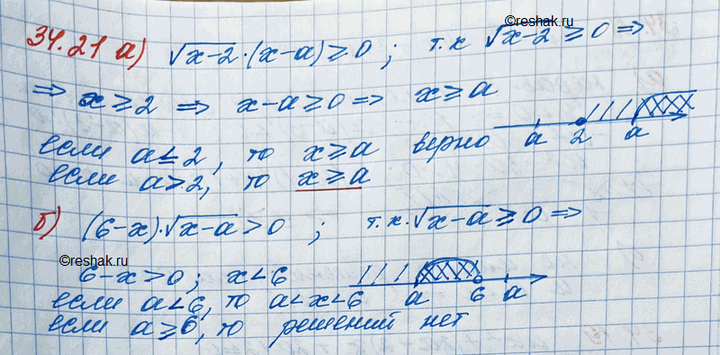 ©reshak.ru
34.21 а) √(x-2)·(x-a)≥0 ; т.к √(x-2) ≥0 ⇒
⇒ x≥2 ⇒ x-a≥0 ⇒ x≥a
если a≤2, то x≥a верно a 2 a
если a>2, то x≥a
б) (6-x)·√(x-a)>0 ; т.к. √(x-a)≥0 ⇒
©reshak.ru
6-x>0; x<6 a 6 a
если a<6, то a<x<6
если a≥6, то решений нет